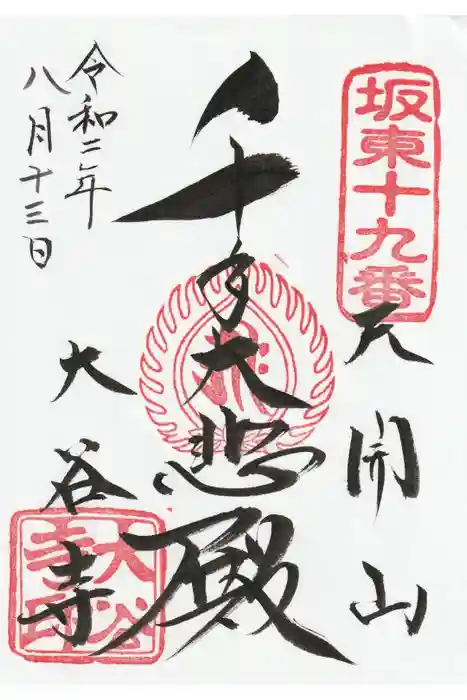 坂東十九番
天開山
千手大悲殿
大谷寺
大谷寺印
令和二年
八月十三日